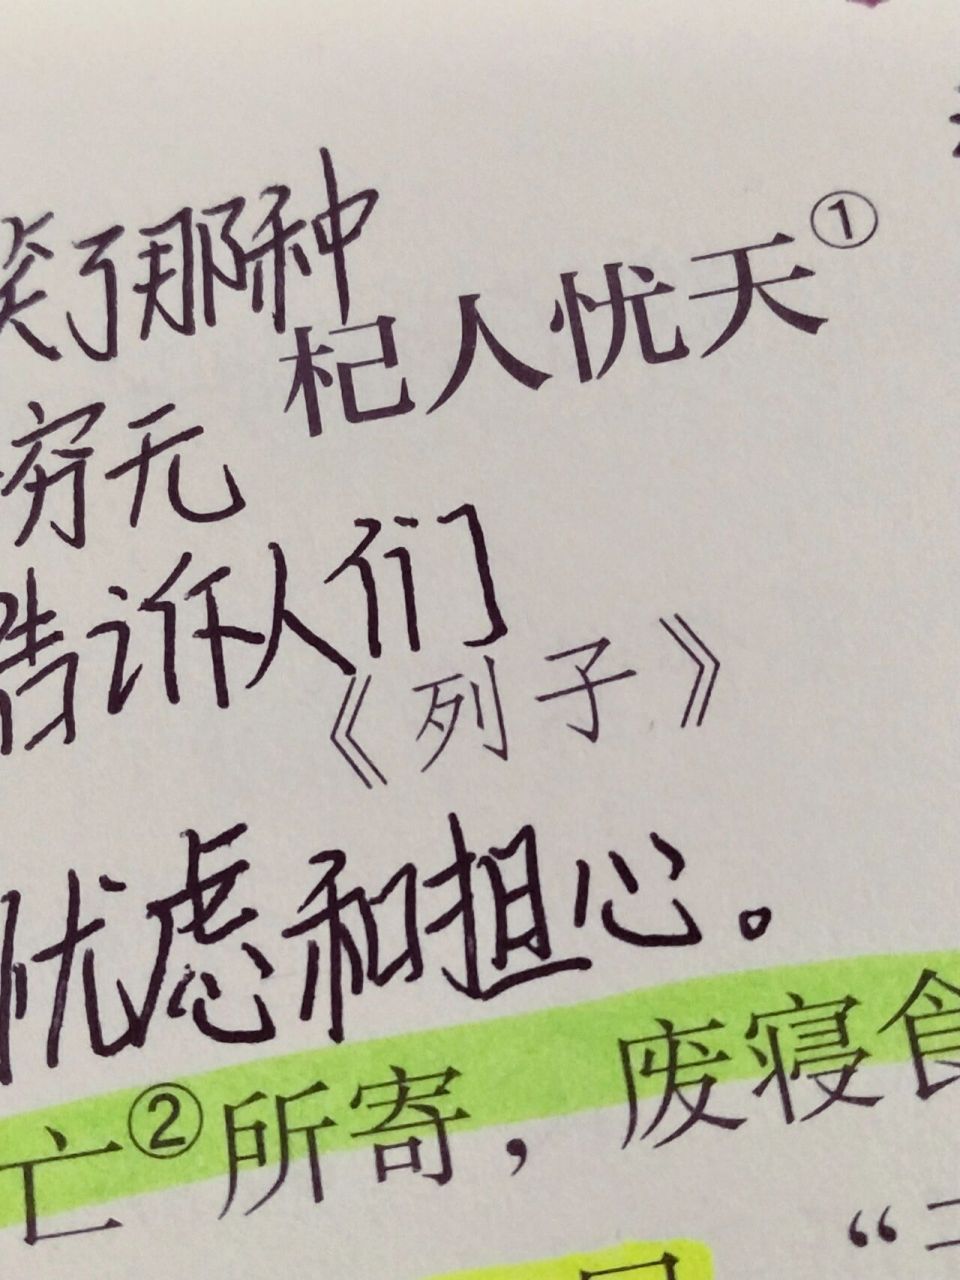 笑了那种
杞人忧天①
穷无
告诉人们
《列子》
忧虑和担心。
亡②所寄，废寝食
“